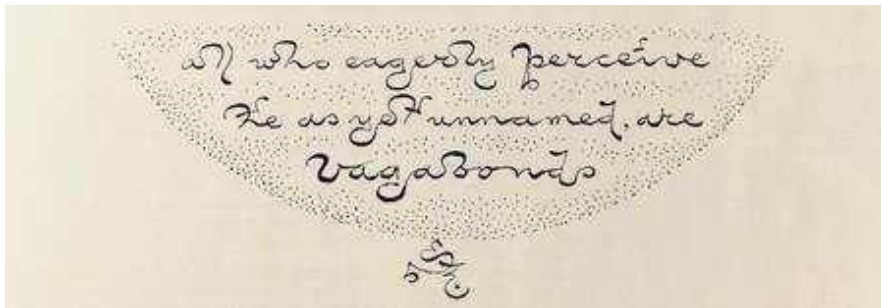 all who eagerly perceive
the as yet unnamed, are
vagabonds